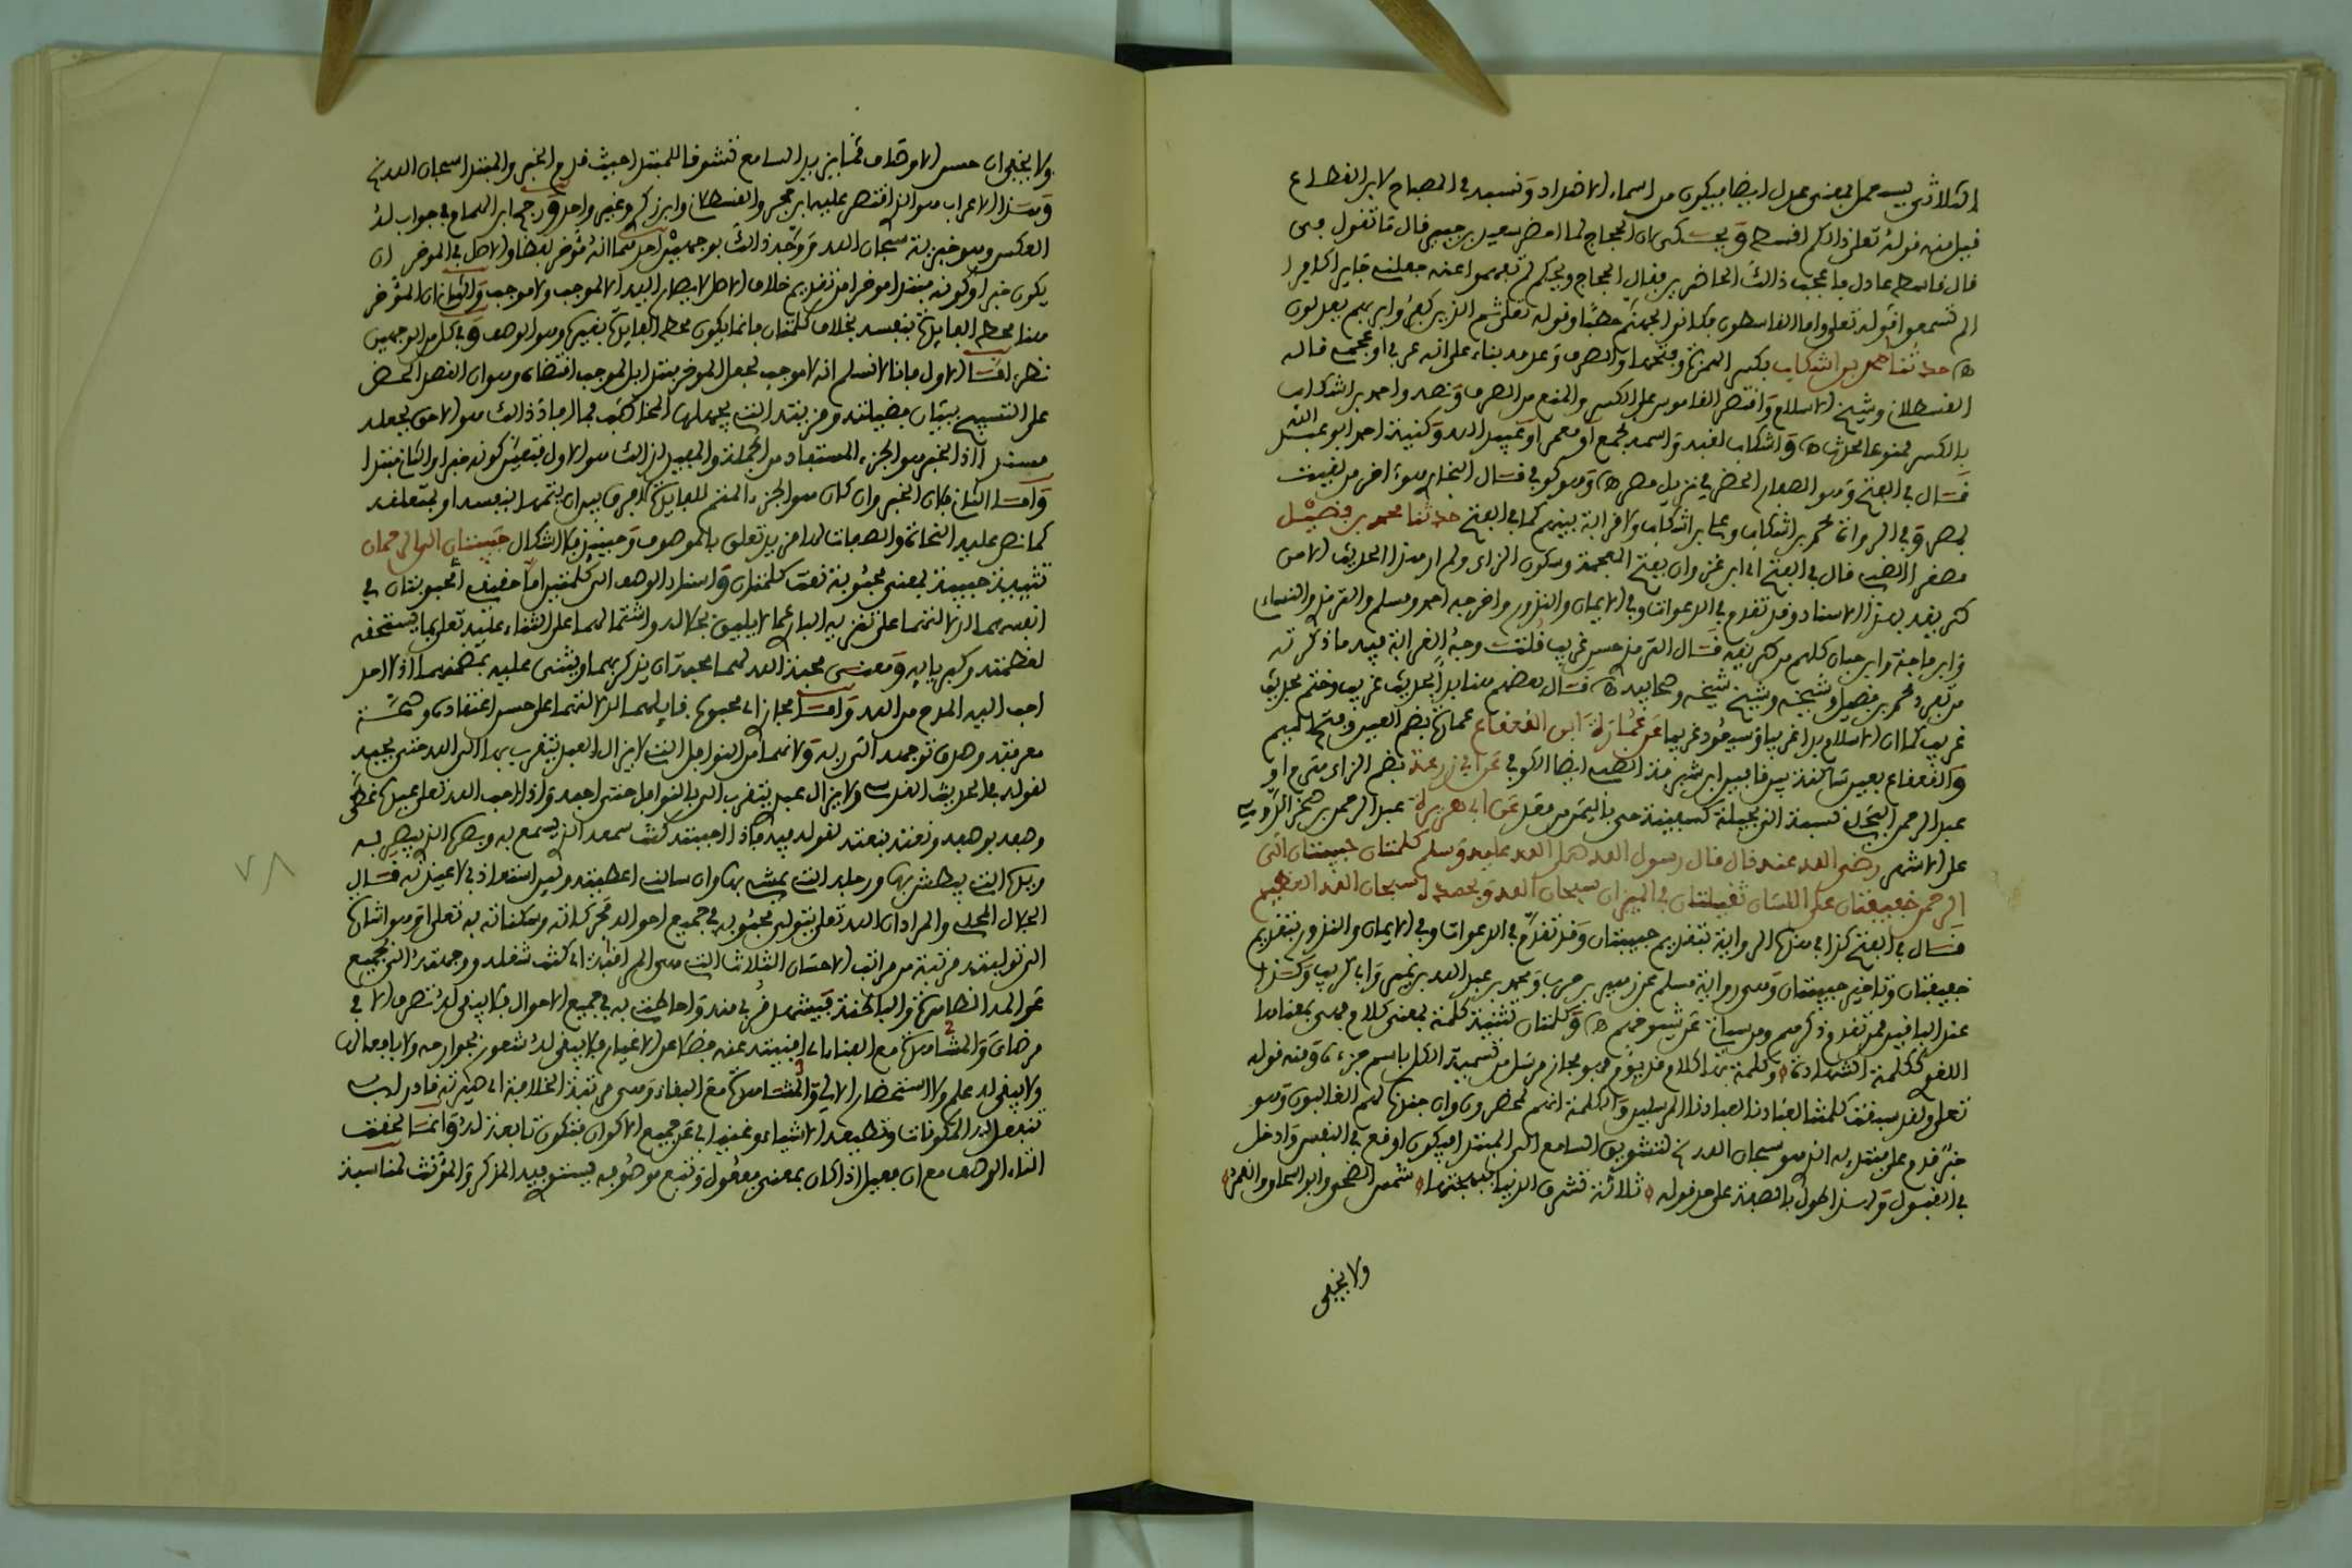 الثلاثي يستعمل بمعنى عدل ايضا فيكون من اسماء الاضداد ونسبه في المصباح لابن القطاع
قيل منه قوله تعلى ذالكم اقسط ويحكى ان الحجاج لما احضر سعيد بن جبير قال ما تقول في
قال قاسط عادل فاعجب ذالك الحاضرين فقال الحجاج ويلكم لم تفهموا عنه جعلني جايرا كافرا
الم تسمعوا قوله تعلى واما القاسطون فكانوا لجهنم حطبا وقوله تعلى ثم الذين كفروا بربهم يعدلون
حدثنا احمد بن اشكاب بكسر الهمزة وفتحها والصرف وعدمه بناء على انه عربي او عجمي قاله
القسطلاني وشيخ الاسلام واقتصر القاموس على الكسر والمنع من الصرف ونصه واحمد بن اشكاب
بالكسر ممنوعا محدث واشكاب لقبه واسمه مجمع او معمر او عبيد الله وكنية احمد ابو عبد الله
قال في الفتح وهو الصفار الحضرمي نزيل مصر وهو كوفي قال البخاري اخر من لقيت
بمصر وفي الرواة محمد بن اشكاب وعلي بن اشكاب ولا قرابة بينهم كما في الفتح حدثنا محمد بن فضيل
مصغرا الضبي قال في الفتح اي ابن غزوان بفتح المعجمة وسكون الزاي ولم ار هذا الحديث الا من
طريقه بهذا الاسناد وقد تقدم في الدعوات وفي الايمان والنذور واخرجه احمد ومسلم والترمذي والنساءي
وابن ماجة وابن حبان كلهم من طريقه قال الترمذي حسن غريب قلت وجه الغرابة فيه ما ذكرته
من تفرد محمد بن فضيل وشيخه وشيخ شيخه وصحابيه قال بعضهم هنا بدا بحديث غريب وختم بحديث
غريب كما ان الاسلام بدا غريبا وسيعود غريبا عن عمارة ابن القعقاع عمارة بضم العين وفتح الميم
والقعقاع بعين ساكنة بين قافين ابن شبرمة الضبي ايضا الكوفي عن ابي زرعة بضم الزاي هرم او
عبد الرحمن البجلي نسبة الى بجيلة كسفينة حي باليمن من معد عن ابي هريرة عبد الرحمن بن صخر الدوسي
على الاشهر رضي الله عنه قال قال رسول الله صلى الله عليه وسلم كلمتان حبيبتان الى
الرحمن خفيفتان على اللسان ثقيلتان في الميزان سبحان الله وبحمده سبحان الله العظيم
قال في الفتح كذا في هذه الرواية بتقديم حبيبتان وقد تقدم في الدعوات وفي الايمان والنذور بتقديم
خفيفتان وتاخير حبيبتان وهي رواية مسلم عن زهير بن حرب ومحمد بن عبد الله بن نمير وابي كريب وكذا
عند الباقين ممن تقدم ذكرهم ومن سياتي عن شيوخهم وكلمتان تثنية كلمة بمعنى كلام فهي بمعناها
اللغوي ككلمة الشهادة وكلمة بها كلام قد يؤم فهو مجاز مرسل من تسمية الكل باسم جزءه ومنه قوله
تعلى ولقد سبقت كلمتنا لعبادنا المرسلين والكلمة انهم لمحضرون وان جندنا لهم الغالبون وهو
خبر قدم على مبتدإه الذي هو سبحان الله الخ لتشويق السامع الى المبتدا فيكون اوقع في النفس وادخل
في القبول وهذا طول بالصفة على حد قوله ثلاثة تشرق الدنيا ببهجتها شمس الضحى وابو اسحاق والقمر
ولا يخفى
ولا يخفى ان حسن الاوصاف مما يزيد السامع تشوقا للمبتدا حيث قدم الخبر والمبتدا سبحان الله الخ
وهذا الاعراب هو الذي اقتصر عليه ابن حجر والقسطلاني وابن زكري وغير واحد ورجح ابن الهمام في جواب له
العكس وهو خبرية سبحان الله ووجه ذالك بوجهين احدهما انه مؤخر لفظا والاصل في الموخر ان
يكون خبرا وكونه مبتدا موخرا من تقديم خلاف الاصل لا يصار اليه الا لموجب ولا موجب والثاني ان المؤخر
هنا محط الفايدة بنفسه بخلاف كلمتان فانما يكون محط الفايدة بغيره وهو الوصف وفي كل من الوجهين
نظر اما الاول فانا لا نسلم انه لا موجب لجعل الموخر مبتدا بل الموجب اقتضاه وهو ان القصد الحض
على التسبيح ببيان فضيلته ومزيته التي
مسندا اذ الخبر هو الجزء المستفاد من الجملة والمفيد لذالك هو الاول فتعين كونه خبرا والثاني مبتدا
واما الثاني فان الخبر وان كان هو الجزء المتم للفايدة لا فرق بين ان يتمها بنفسه او بمتعلقه
كما نص عليه النحاة والصفات لها مزيد تعلق بالموصوف وحينئذ فلا اشكال حبيبتان الى الرحمان
تثنية حبيبة بمعنى محبوبة نعت كلمتان واسناد الوصف الى كلمتين اما حقيقة اي محبوبتان في
انفسهما لدلالتهما على تنزيه الباري عما لا يليق بجلاله واشتمالهما على الثناء عليه تعلى بما يستحقه
لعظمته وكبريايه ومعنى محبة الله لهما محبته ان يذكر بهما ويثنى عليه بمضمنهما اذ لا احد
احب اليه المدح من الله واما مجازا اي محبوب قايلهما لدلالتهما على حسن اعتقاده وصحة
معرفته وصدق توجهه الى ربه ولانهما من النوافل التي لا يزال العبد يتقرب بها الى الله حتى يحبه
لقوله في الحديث القدسي ولا يزال عبدي يتقرب الي بالنوافل حتى احبه واذا احب الله تعلى عبده غطى
وصفه بوصفه ونعته بنعته لقوله فيه فاذا احببته كنت سمعه الذي يسمع به وبصره الذي يبصر به
ويده التي يبطش بها ورجله التي يمشي بها وان سالني اعطيته ولئن استعاذني لاعيذنه قال
الجلال المحلي والمراد ان الله تعلى يتولى محبوبه في جميع احواله فحركاته وسكناته به تعلى وهو اشارة
الى توليته مرتبة من مراتب الاحسان الثلاث التي هي المراقبة اي كنت شغله ووجهته الى جميع
عوالمه الظاهرة والباطنة فيشهد قربي منه واحاطتي به في جميع الاحوال فلا يبقى له تصرف الا في
مرضاتي والمشاهدة مع الفناء اي افنيته عنه فضلا عن الاغيار فلا يبقى له شعور بجوارحه ولا بافعاله
ولا يبقى له علم ولا استحضار الا لي والمشاهدة مع البقاء وهي مرتبة الخلافة اي صيرته قادرا
تنفعل له المكونات وتطيعه الاشياء وغنيا بي عن جميع الاكوان فتكون تابعة له وانما لحقت
التاء الوصف مع ان فعيل اذا كان بمعنى مفعول وتبع موصوفه يستوي فيه المذكر والمؤنث لمناسبة
٧٨